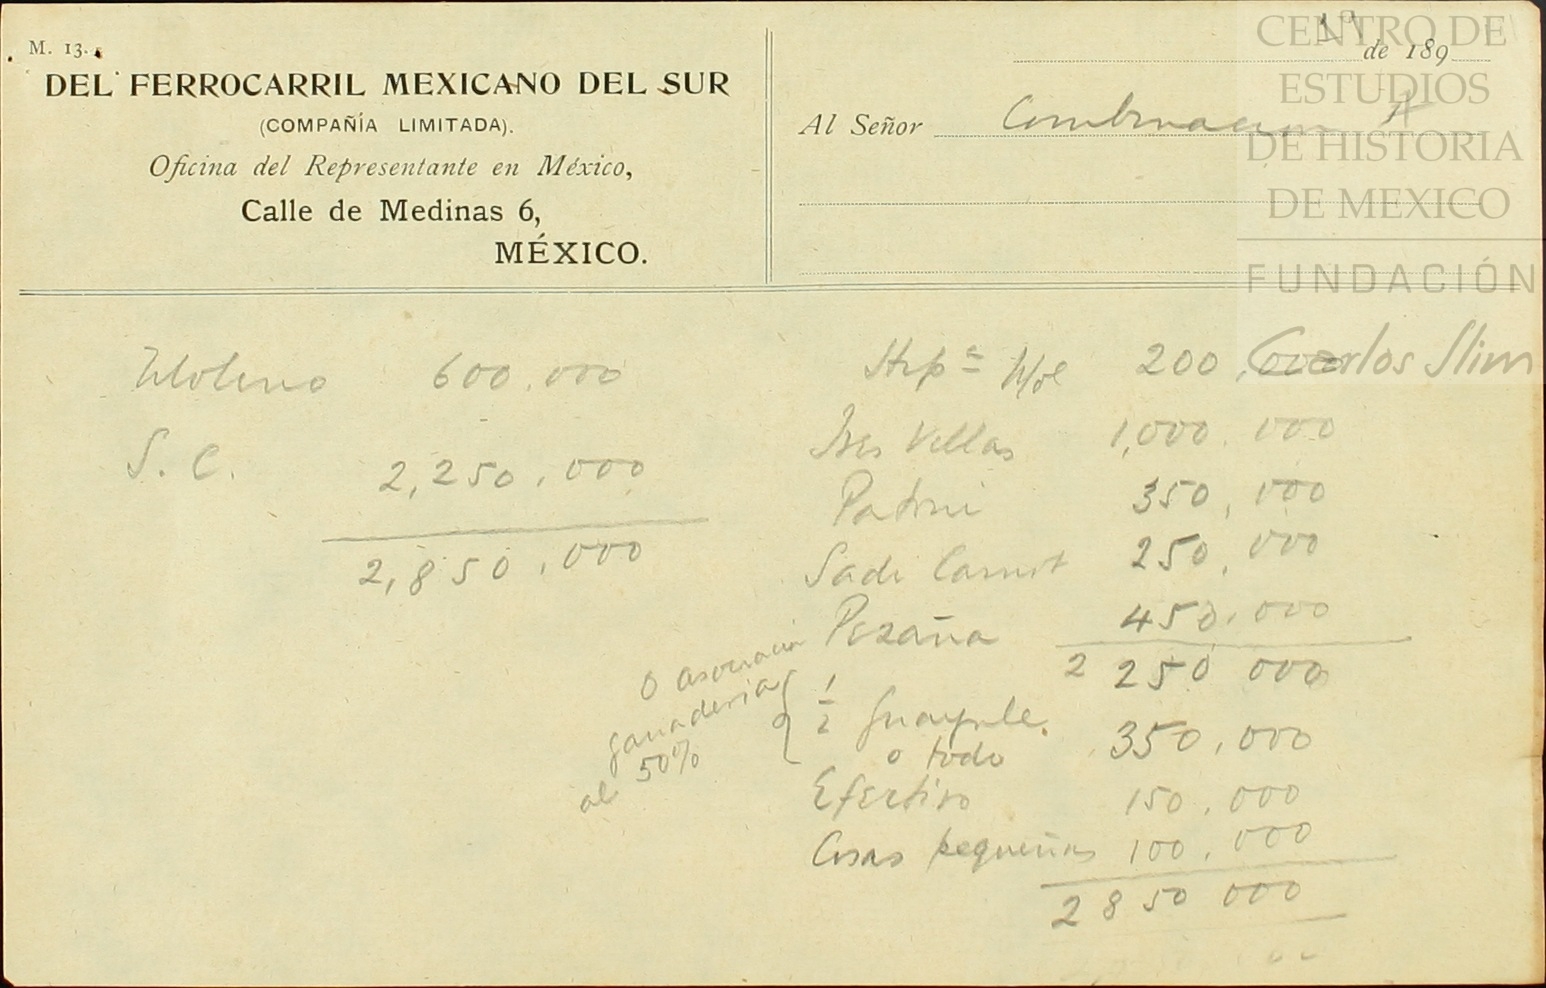 M. 13.
DEL FERROCARRIL MEXICANO DEL SUR
(COMPAÑÍA LIMITADA).
Oficina del Representante en México,
Calle de Medinas 6,
MÉXICO.
de 189
Al Señor Combinacion A
CENTRO DE
ESTUDIOS
DE HISTORIA
DE MEXICO
FUNDACIÓN
Carlos Slim
Molino 600.000
S. C. 2,250.000
2,850.000
200,000
Tres Villas 1,000.000
Patoni 350,000
Sadi Carnot 250,000
Pezaña 450.000
2 250 000
1/2 guayule 350.000
o todo
O asociacion
ganaderia
al 50%
Efectivo 150.000
Cosas pequeñas 100.000
2 850 000